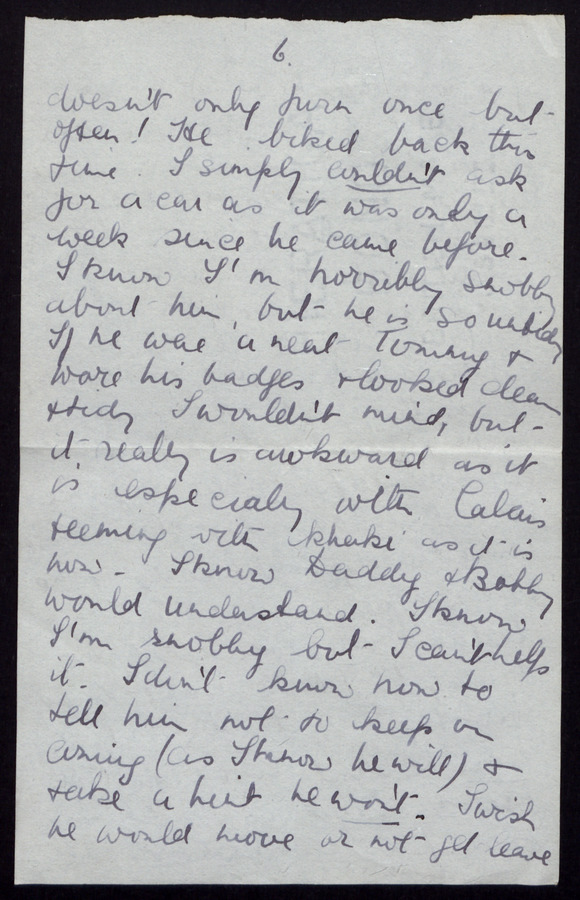 6.
doesn't only turn once but
often! He biked back this
time. I simply couldn't ask
for a car as it was only a
week since he came before.
I know I'm horribly snobby
about him, but he is so untidy
If he wore a neat Tommy &
wore his badges & looked clean
& tidy I wouldn't mind, but
it really is awkward as it
is especially with Calais
teeming with khaki as it is
now. I know Daddy & Bobby
would understand. I know
I'm snobby but I can't help
it. I don't know how to
tell him not to keep on
coming (as I know he will) &
take a hint he won't. I wish
he would move or not get leave